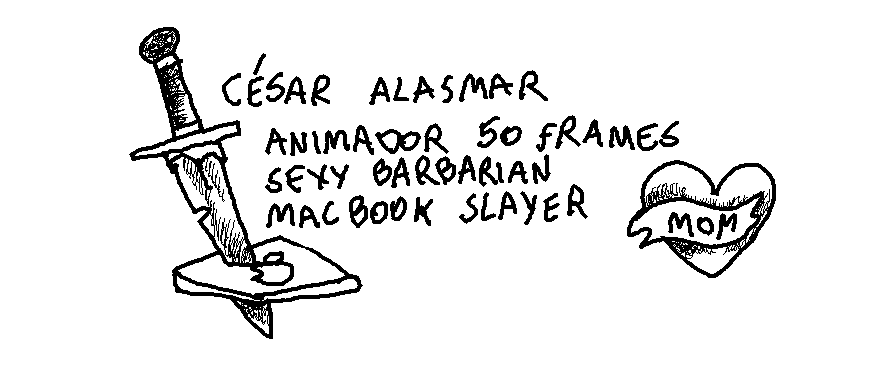 CÉSAR ALASMAR
ANIMADOR 50 FRAMES
SEXY BARBARIAN
MACBOOK SLAYER
MOM